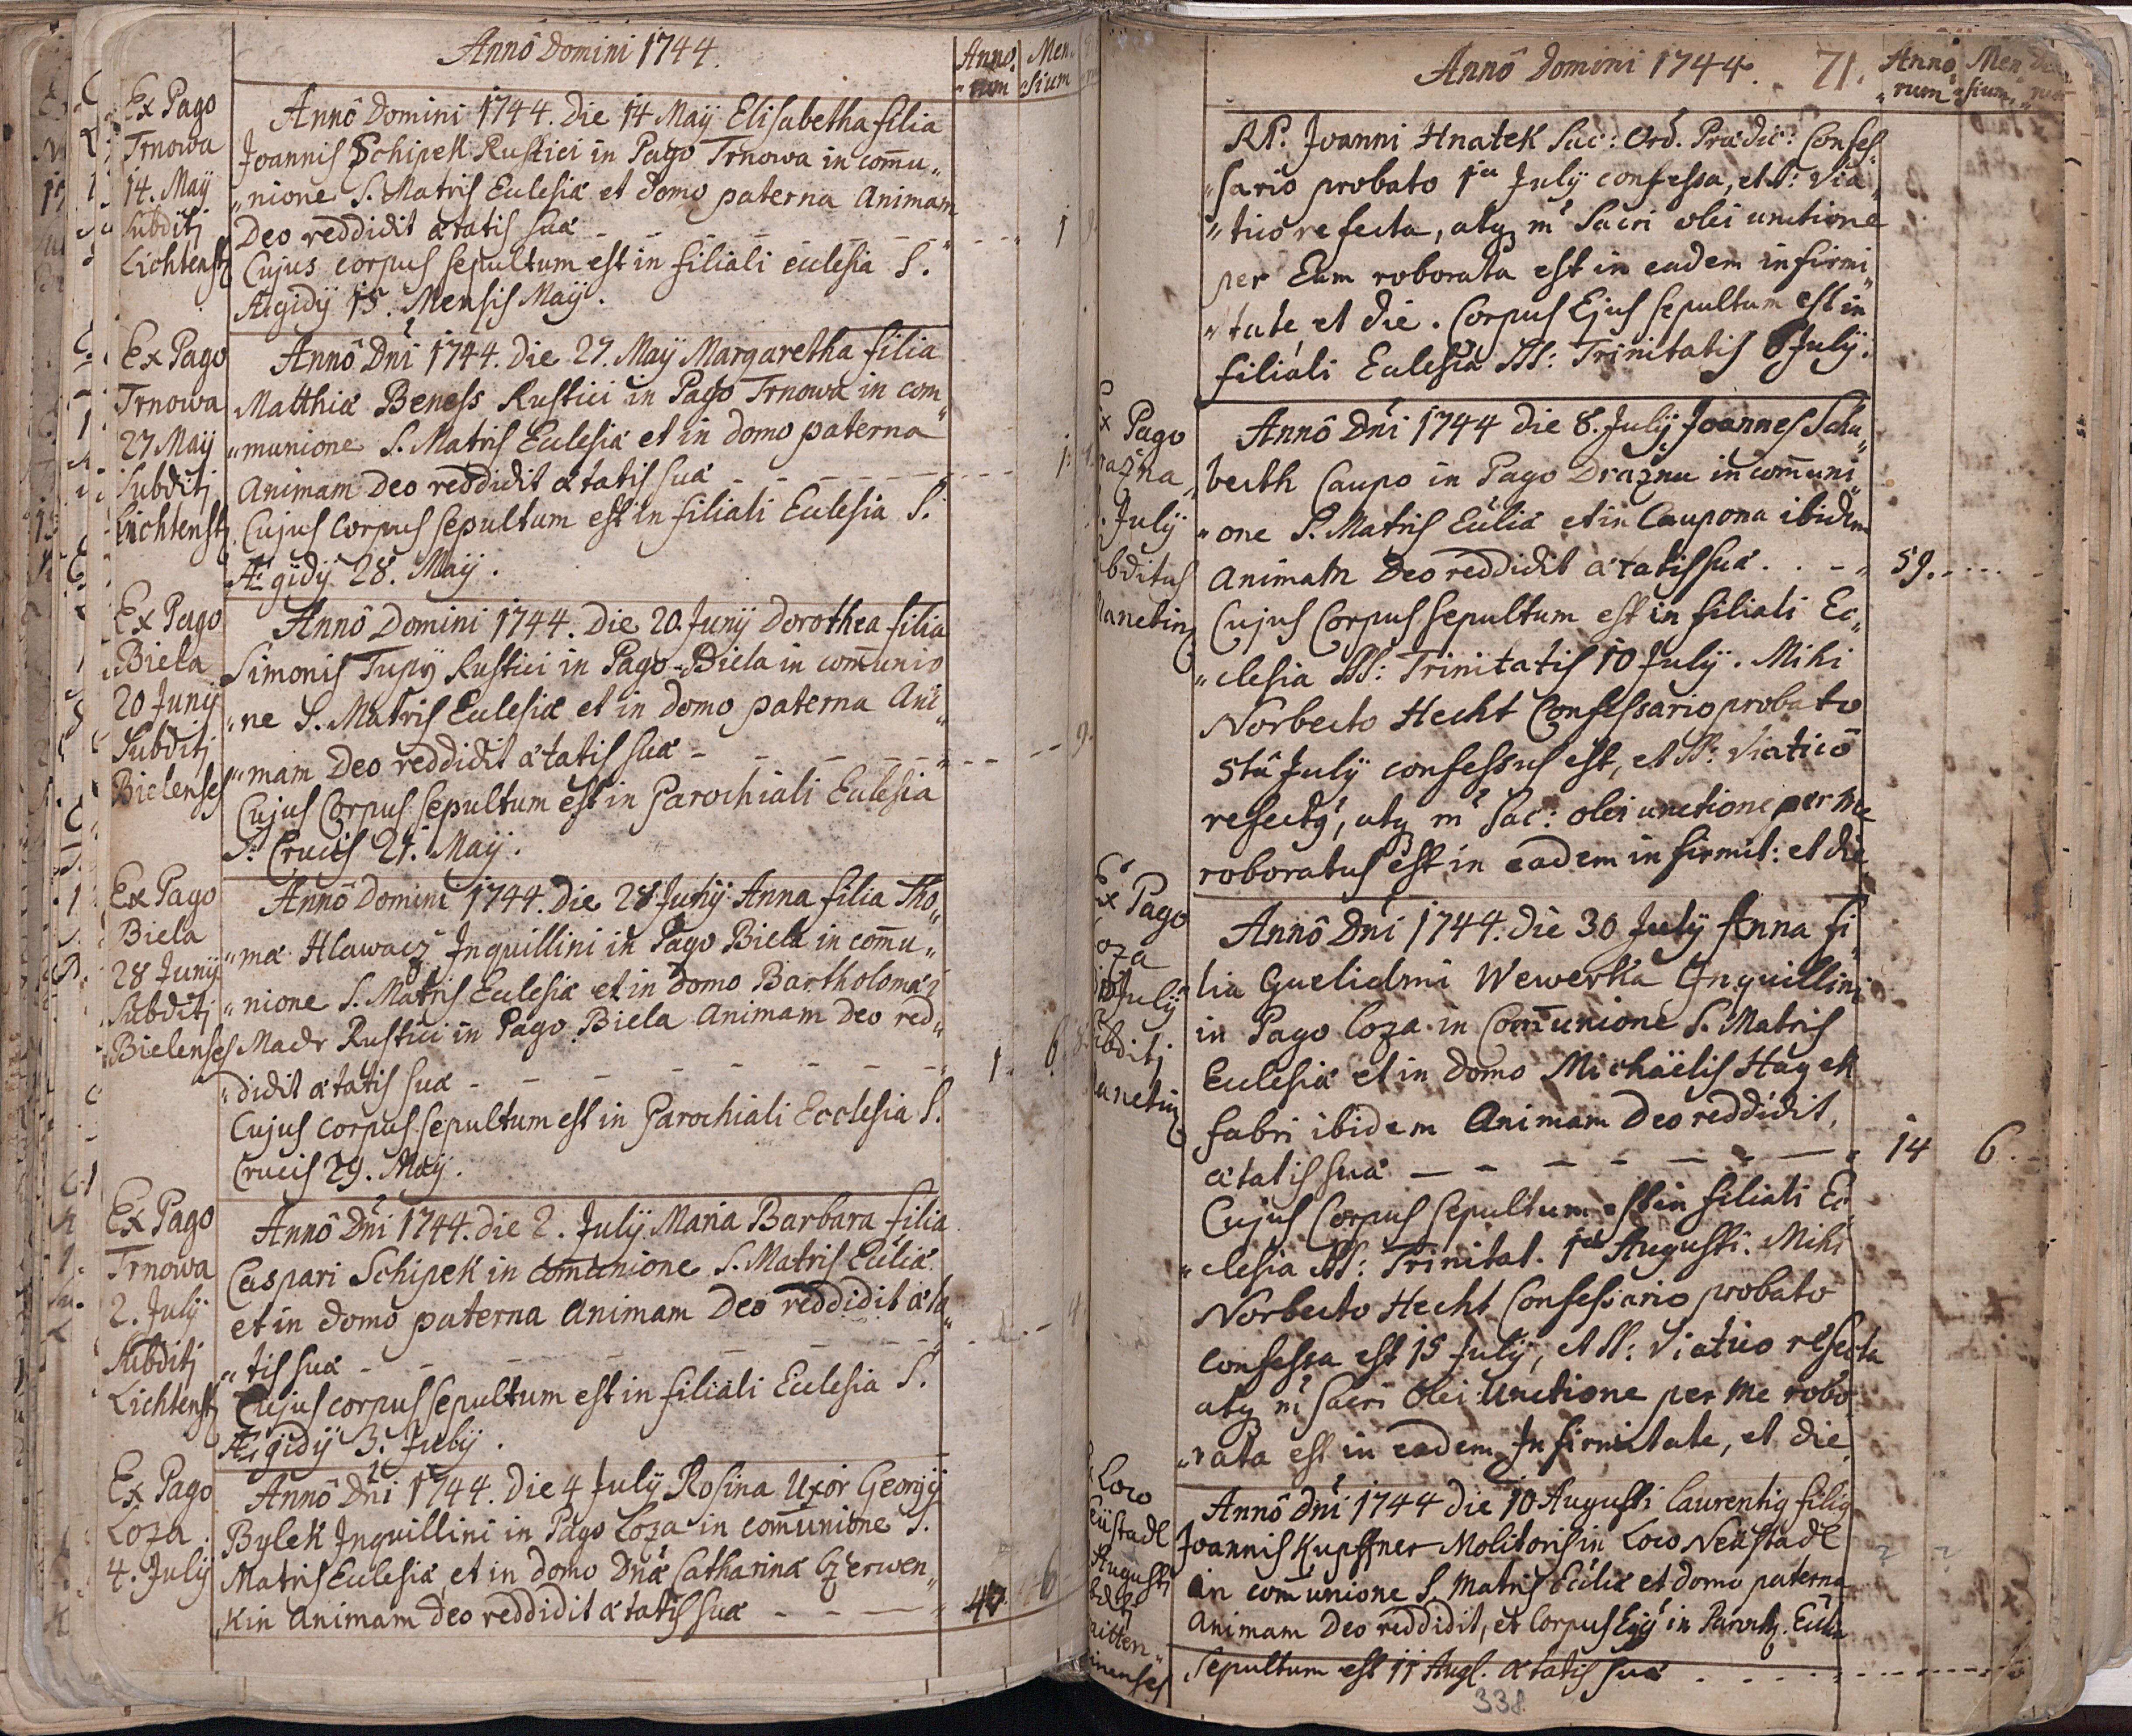 Annô Domini 1744.
Anno,
„rum
Men
„sium
Ex Pago
Trnowa
14. Maÿ
Subditj
Lichtenst
Annô Domini 1744. Die 14 Maÿ Elisabetha filia
Joannis Schipek Rustici in Pago Trnowa in com̄u„
„nione S. Matris Eclesiæ et domo paterna Animam
Deo reddidit ætatis suæ - - - - - - - 1
Cujus corpus sepultum est in filiali eclesia S.
Ægidÿ 15. Mensis Maÿ.
Ex Pago
Trnowa
27 Maÿ
Subditj
Lichtenst
Annô Dni 1744. Die 27. Maÿ Margaretha filia
Matthiæ Beness Rustici in Pago Trnowa in com„
„munione S. Matris Eclesiæ et in domo paterna
Animam Deo reddidit ætatis suæ - - - - - 1.
Cujus Corpus sepultum est in filiali Eclesia S.
Ægidÿ 28. Maÿ.
Ex Pago
Biela
20 Junÿ
Subditj
Bielenses
Annô Domini 1744. Die 20. Junÿ Dorothea filia
Simonis Tupÿ Rustici in Pago Biela in com̄unio
„ne S. Matris Eclesiæ et in domo paterna Ani„
„mam Deo reddidit ætatis suæ - - - - - - 9.
Cujus Corpus sepultum est in Parochiali Eclesia
S: Crucis 21. Maÿ.
Ex Pago
Biela
28 Junÿ
Subditj
Bielenses
Annô Domini 1744. Die 28 Junÿ Anna filia Tho„
„mæ Hlawacz Inquillini in Pago Biela in com̄u„
„nione S. Matris Eclesiæ et in domo Bartholomæi
Madr Rustici in Pago Biela Animam Deo red„
„didit ætatis suæ - - - - - - - 1. 6
Cujus corpus sepultum est in Parochiali Ecclesia S.
Crucis 29. Maÿ.
Ex Pago
Trnowa
2. Julÿ
Subditj
Lichtenst
Annô Dni 1744. die 2. Julÿ Maria Barbara filia
Caspari Schipek in com̄unione S. Matris Ecliæ
et in domo paterna Animam Deo reddidit æta„
„tis suæ - - - - - - - 4
Cujus corpus sepultum est in filiali Eclesia S.
Ægidÿ 3. Julÿ.
Ex Pago
Loza
4. Julÿ
Annô Dni 1744. Die 4 Julÿ Rosina Uxor Georgÿ
Bylek Inquillini in Pago Loza in com̄unione S.
Matris Eclesiæ, et in domo Dnæ Catharinæ Czerwen„
kin Animam Deo reddidit ætatis suæ - - - 6
Annô Domini 1744.
71.
Anno
„rum
Men
„sium
RP. Joanni Hnatek Sac: Ord. Prædic: Confes„
„sario probato 1a Julÿ confessa, et S: Via„
„tico refecta, atq3 in Sacri olei unctione
per Eum roborata est in eadem infirmi„
„tate, et die. Corpus Ejus sepultum est in
filiali Eclesia SS: Trinitatis 6 Julÿ.
Pago
azna
Julÿ
bditus
anetin
Annô Dni 1744 die 8. Julÿ Joannes Schu„
berth Caupo in Pago Drazna in com̄uni„
„one S. Matris Ecliæ et in Caupona ibidem
Animam Deo reddidit ætatis suæ . . - 59.
Cujus Corpus sepultum est in filiali Ec„
„clesia SS: Trinitatis 10 Julÿ. Mihi
Norberto Hecht Confessario probato
5tâ Julÿ confessus est, et SS: Viaticô
refectq, atq in Sac: olei unctione per me
roboratus est in eadem infirmit: et die
Ex Pago
oza
Julÿ
bditj
anetin
Annô Dni 1744. die 30 Julÿ Anna fi„
lia Guelielmi Wewerka Inquillini
in Pago Loza in Com̄unione S. Matris
Eclesiæ et in Domo Michäelis Hayek
fabri ibidem Animam Deo reddidit,
ætatis suæ - - - - - - 14 6.
Cujus Corpus sepultum est in filiali Ec
„clesia SS: Trinitat. 1a Augusti. Mihi
Norberto Hecht Confessario probato
confessa est 15 Julÿ, et SS: Viatico refecta
atq in Sacri Olei Unctione per me robo
„rata est in eadem Infirmitate, et die.
Loco
eüstadl
Augusti
Annô Dni 1744 die 10 Augusti Laurentiq filiq
Joannis Kupffner Molitoris in Loco Neüstadl
in com̄unione S. Matris Ecliæ et domo paterna
Animam Deo reddidit, et Corpus Ejq in Paroch. Ecla
Sepultum est 11 Augl. ætatis suæ - - - -
338